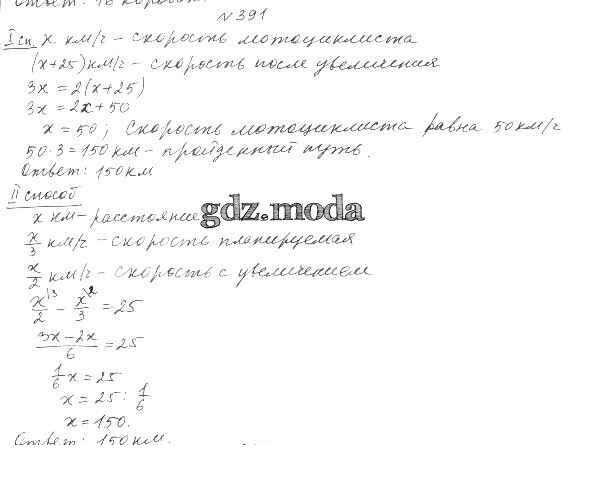 Ответ: 16 коробок.
№391
I сп. х км/ч - скорость мотоциклиста
(х+25) км/ч - скорость после увеличения
3х = 2(х+25)
3х = 2х + 50
х = 50; Скорость мотоциклиста равна 50 км/ч
50·3 = 150 км - пройденный путь.
Ответ: 150 км
II способ
х км - расстояние
gdz.moda
х/3 км/ч - скорость планируемая
х/2 км/ч - скорость с увеличением
х\3/2 - х\2/3 = 25
3х-2х/6 = 25
1/6 х = 25
х = 25 : 1/6
х = 150.
Ответ: 150 км.